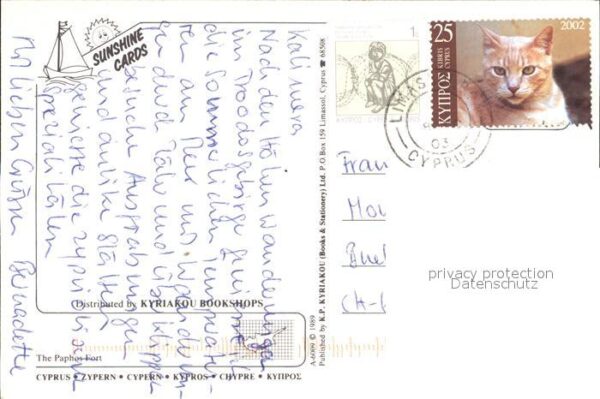 SUNSHINE
CARDS
Kalimera
Nach den Höhenwanderungen
im Troodosgebirge geniesse ich
die sommerlichen Temperatu-
ren am Meer und wandere
durch Täler und über Klippen
besuche Ausgrabungen
und antike Stätten
geniesse die zypriotischen
Spezialitäten
Mit lieben Grüssen Bernadette
Distributed by KYRIAKOU BOOKSHOPS
The Paphos Fort
CYPRUS · ZYPERN · CYPERN · KYPROS · CHYPRE · ΚΥΠΡΟΣ
A-6009 © 1989
Published by K.P. KYRIAKOU (Books & Stationery) Ltd. P.O.Box 159 Limassol, Cyprus ☎ 68508
1c
25
ΚΥΠΡΟΣ
KIBRIS
CYPRUS
2002
LIMAS
03
CYPRUS
Frau
CH-
privacy protection
Datenschutz